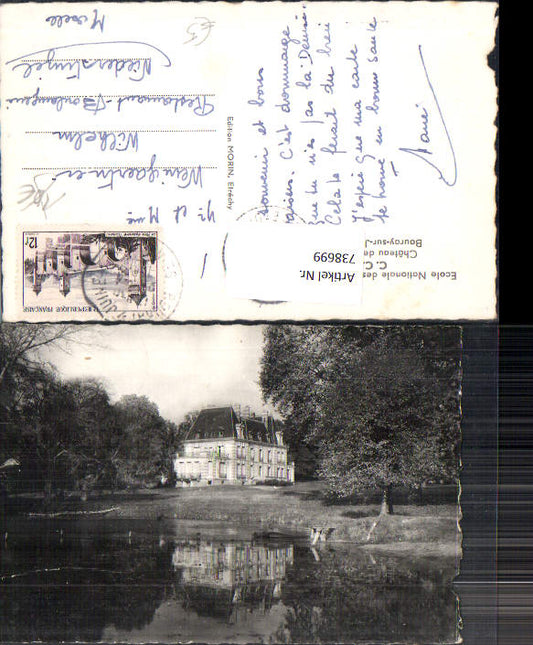 Ecole Nationale des
C. C.
Château de
Bouray-sur-J
Edition MORIN, Etréchy
Artikel Nr.
738699
souvenir et bons
baisers. C'est dommage
que tu n'es pas là. Denise
Cela te ferait du bien
J'espère que ma carte
te trouve en bonne santé
Mr et Mme
Wilhelm
Restaurant - Boulangerie
Niederstinzel
Moselle
12F
REPUBLIQUE FRANÇAISE